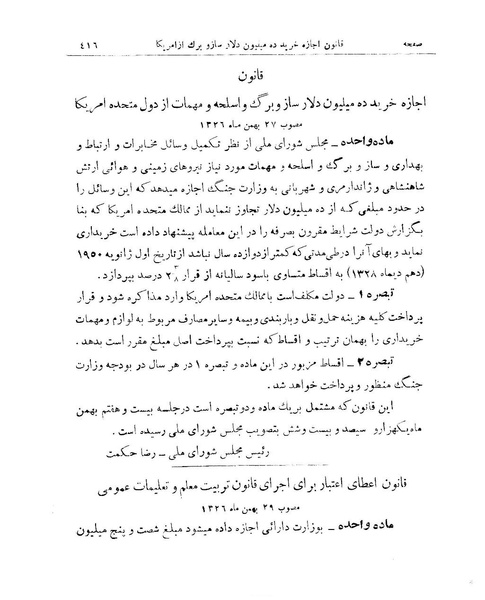 صفحه قانون اجازه خرید ده میلیون دلار سازوبرگ ازامریکا ٤١٦
قانون
اجازه خرید ده میلیون دلار سازوبرگ و اسلحه و مهمات از دول متحده امریکا
مصوب ٢٧ بهمن ماه ١٣٢٦
ماده واحده ـ مجلس شورای ملی از نظر تکمیل وسائل مخابرات و ارتباط و
بهداری و ساز و برگ و اسلحه و مهمات مورد نیاز نیروهای زمینی و هوائی ارتش
شاهنشاهی و ژاندارمری و شهربانی به وزارت جنگ اجازه میدهد که این وسائل را
در حدود مبلغی که از ده میلیون دلار تجاوز ننماید از ممالک متحده امریکا که بنا
بگزارش دولت شرایط مقرون بصرفه را در این معامله پیشنهاد داده است خریداری
نماید و بهای آنرا درطی مدتی که کمتر ازدوازده سال نباشد ازتاریخ اول ژانویه ١٩٥٠
(دهم دیماه ١٣٢٨) به اقساط متساوی باسود سالیانه از قرار ٢٣⁄٨ درصد بپردازد.
تبصره ١ ـ دولت مکلف است باممالک متحده امریکا وارد مذاکره شود و قرار
پرداخت کلیه هزینه حمل و نقل و باربندی و بیمه و سایر مصارف مربوط به لوازم و مهمات
خریداری را بهمان ترتیب و اقساط که نسبت بپرداخت اصل مبلغ مقرر است بدهد.
تبصره ٢ ـ اقساط مزبور در این ماده و تبصره ١ در هر سال در بودجه وزارت
جنگ منظور و پرداخت خواهد شد.
این قانون که مشتمل بریک ماده ودوتبصره است درجلسه بیست و هفتم بهمن
ماه یکهزارو سیصد و بیست وشش بتصویب مجلس شورای ملی رسیده است .
رئیس مجلس شورای ملی ـ رضا حکمت
قانون اعطای اعتبار برای اجرای قانون تربیت معلم و تعلیمات عمومی
مصوب ٢٩ بهمن ماه ١٣٢٦
ماده واحده ـ بوزارت دارائی اجازه داده میشود مبلغ شصت و پنج میلیون